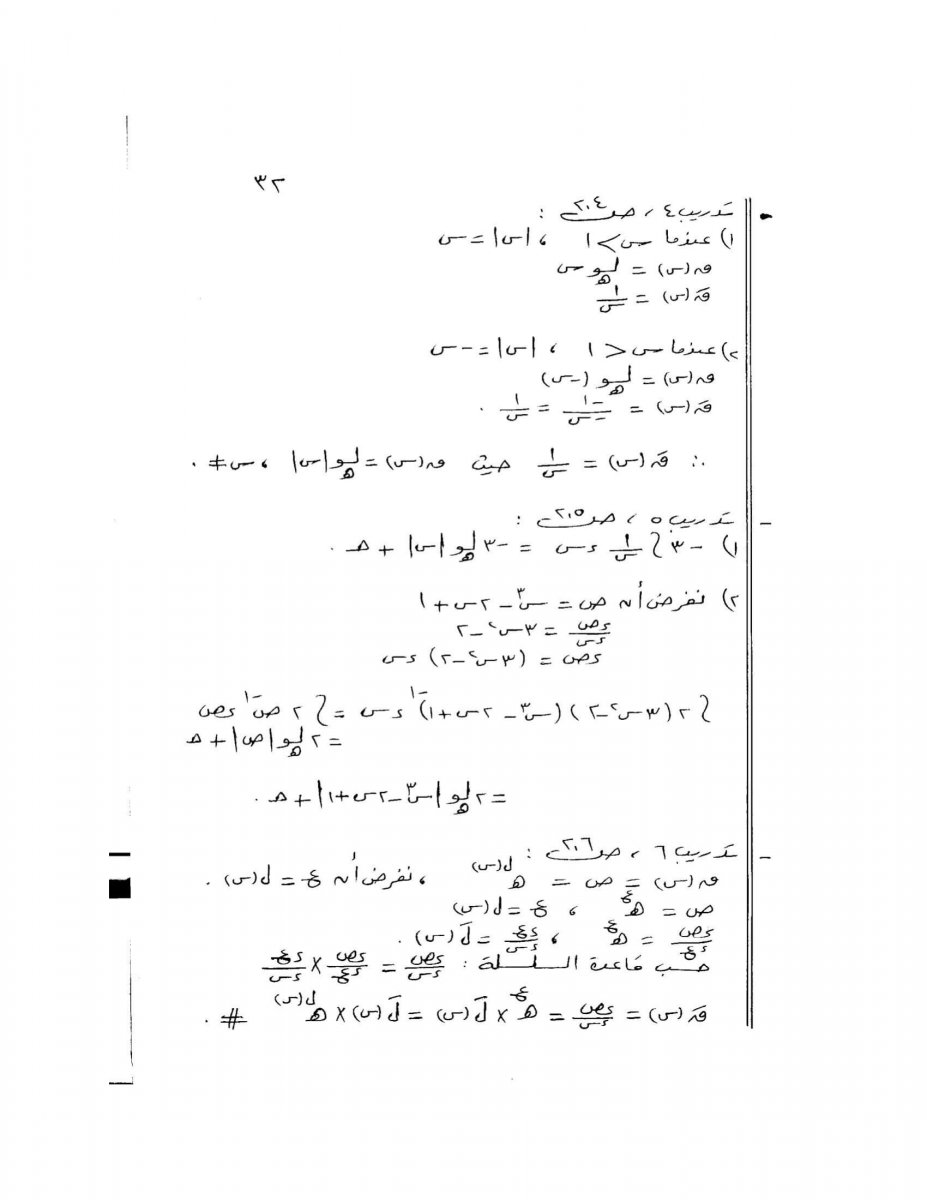 ٣٢
تدريب ٤ ، ص ٢٠٤ :
١) عندما س > ١ ، |س| = س
ق(س) = لو_هـ س
قَ(س) = ١/س
٢) عندما س < ١ ، |س| = -س
ق(س) = لو_هـ (-س)
قَ(س) = -١/-س = ١/س .
∴ قَ(س) = ١/س حيث ق(س) = لو_هـ |س| ، س ≠ ٠
تدريب ٥ ، ص ٢٠٥ :
١) -٣ ∫ ١/س ءس = -٣ لو_هـ |س| + هـ .
٢) نفرض أن ص = س^٣ - ٢س + ١
ءص/ءس = ٣س^٢ - ٢
ءص = (٣س^٢ - ٢) ءس
∫ ٢ (٣س^٢ - ٢) (س^٣ - ٢س + ١)^-١ ءس = ∫ ٢ ص^-١ ءص
= ٢ لو_هـ |ص| + هـ
= ٢ لو_هـ |س^٣ - ٢س + ١| + هـ .
تدريب ٦ ، ص ٢٠٦ :
ق(س) = ص = هـ^ل(س) ، نفرض أن ع = ل(س) .
ص = هـ^ع ، ع = ل(س)
ءص/ءع = هـ^ع ، ءع/ءس = لَ(س) .
حسب قاعدة السلسلة : ءص/ءس = ءص/ءع × ءع/ءس
قَ(س) = ءص/ءس = هـ^ع × لَ(س) = لَ(س) × هـ^ل(س) # .